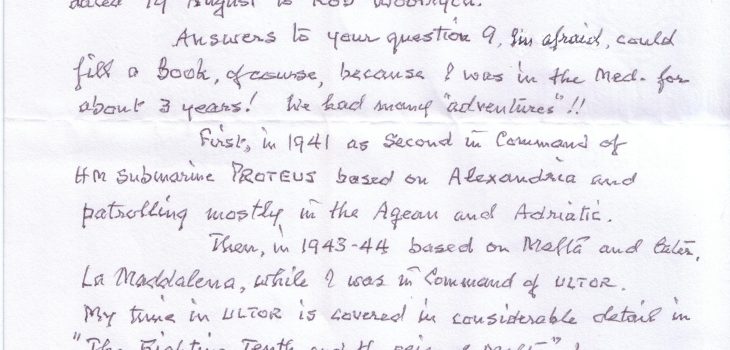 dated 14 August to Rob
Answers to your question 9, I'm afraid, could
fill a Book, of course, because I was in the Med. for
about 3 years! We had many "adventures"!!
First, in 1941 as Second in Command of
HM Submarine PROTEUS based on Alexandria and
patrolling mostly in the Agean and Adriatic.
Then, in 1943-44 based on Malta and later,
La Maddalena, while I was in Command of ULTOR.
My time in ULTOR is covered in considerable detail in
"The Fighting Tenth and